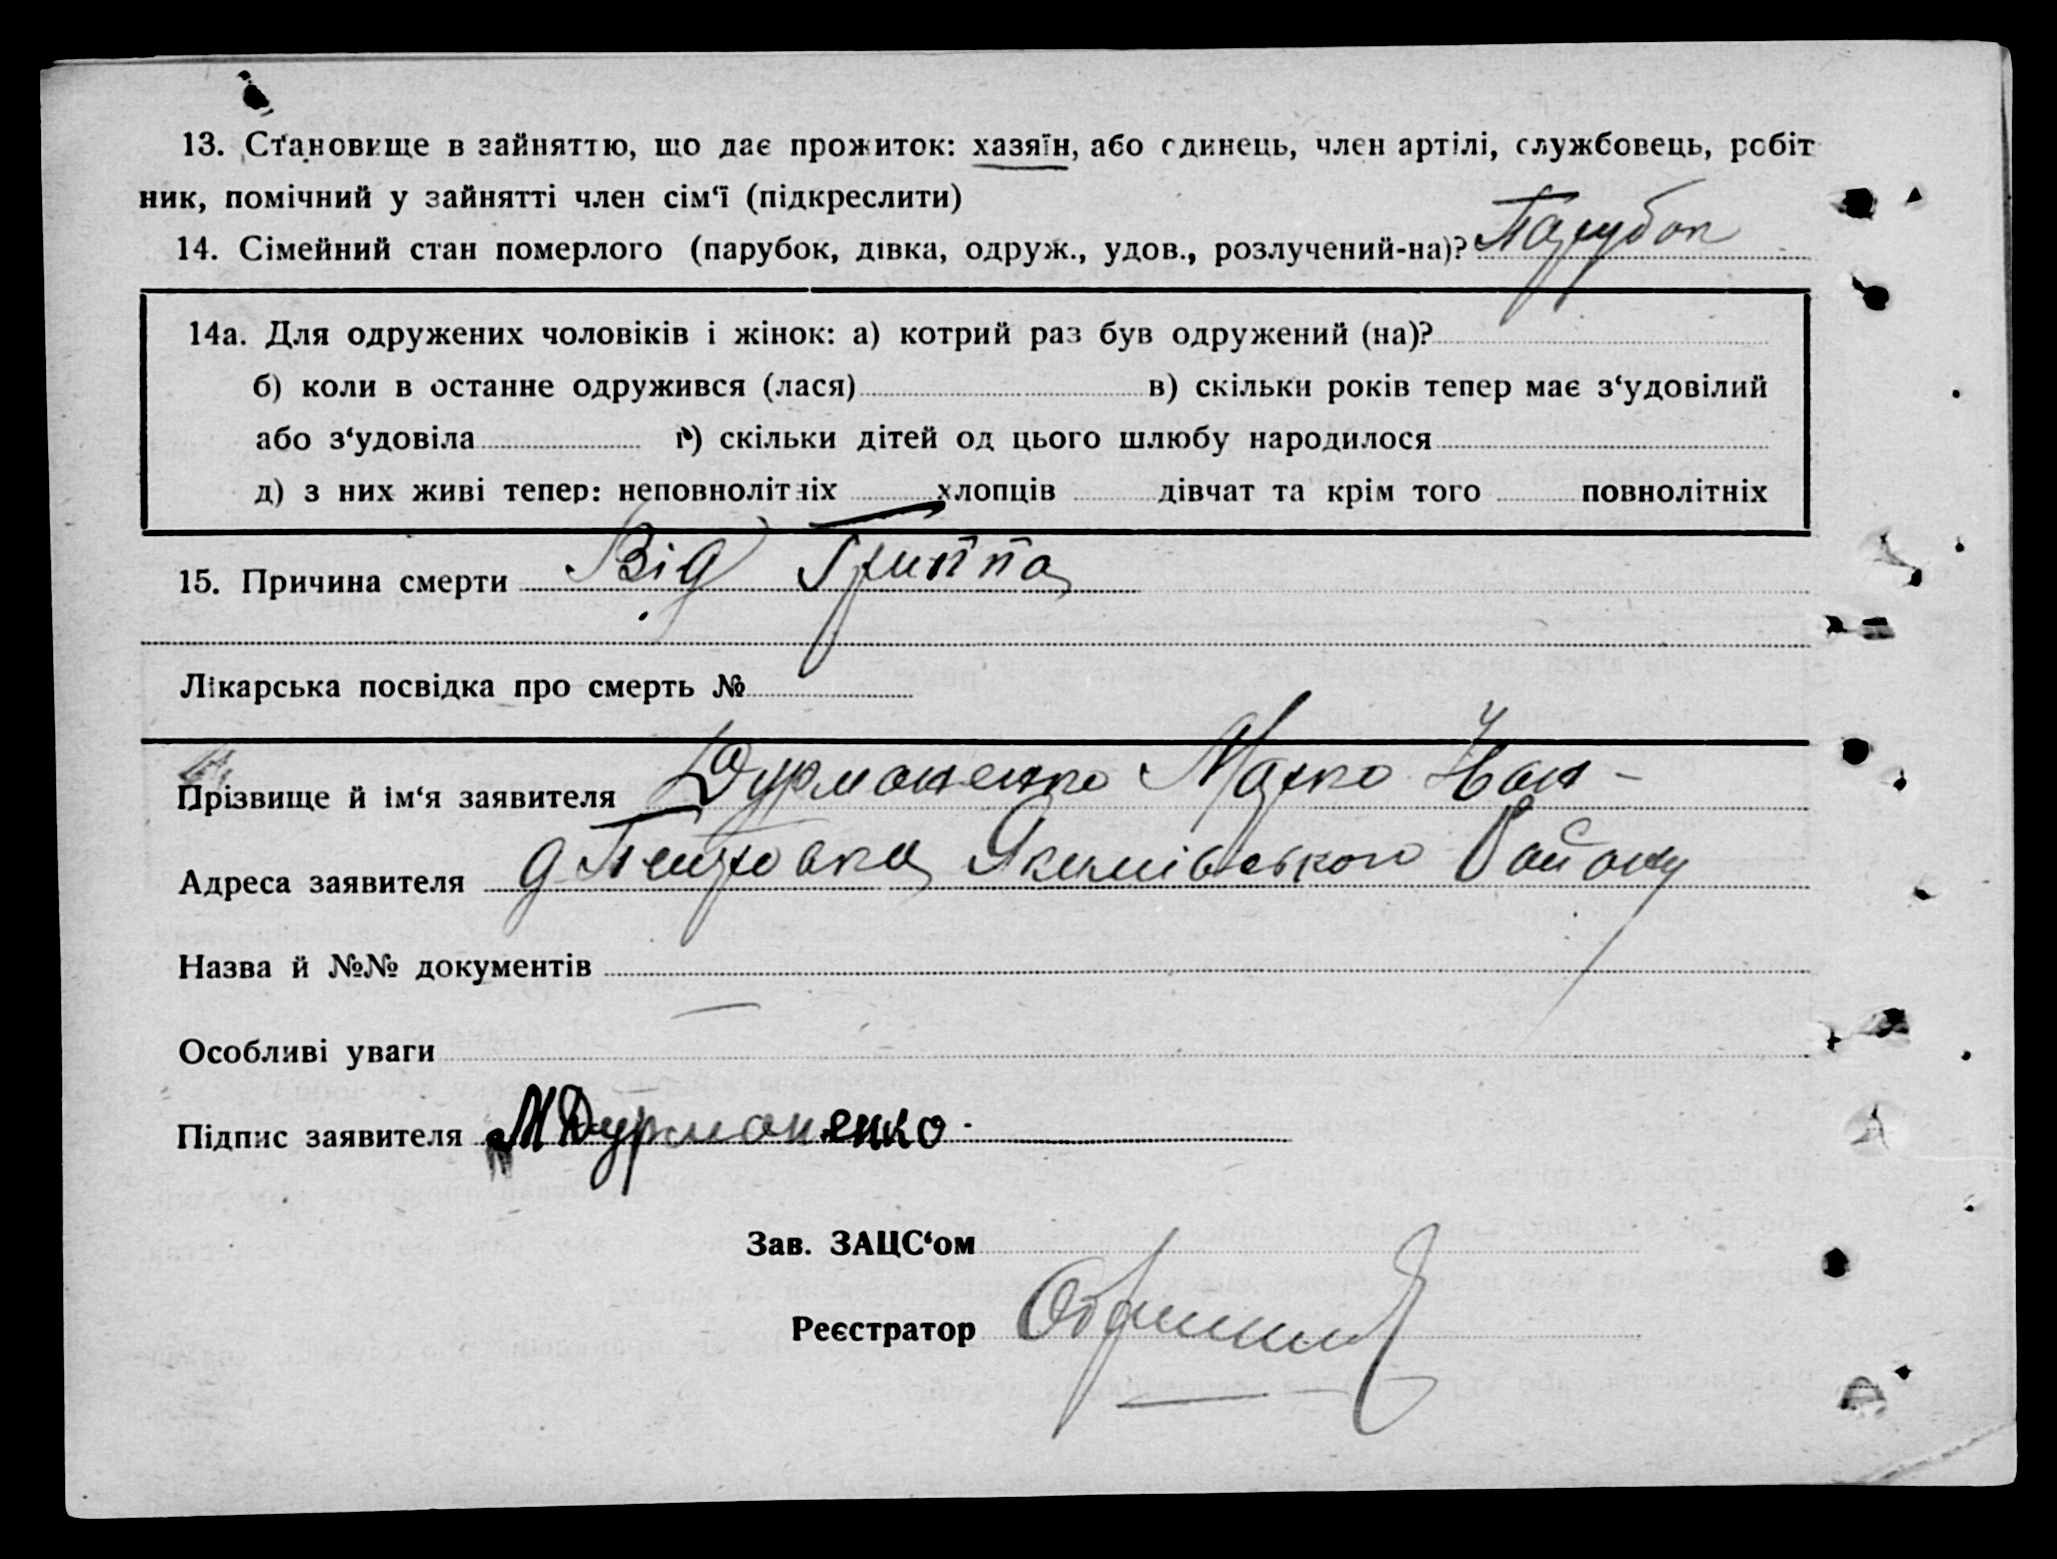 13. Становище в зайняттю, що дає прожиток: хазяїн, або єдинець, член артілі, службовець, робіт
ник, помічний у зайнятті член сім‘ї (підкреслити)
14. Сімейний стан померлого (парубок, дівка, одруж., удов., розлучений-на)? Парубок
14а. Для одружених чоловіків і жінок: а) котрий раз був одружений (на)?
б) коли в останне одружився (лася) в) скільки років тепер має з‘удовілий
або з‘удовіла г) скільки дітей од цього шлюбу народилося
д) з них живі тепер: неповнолітніх хлопців дівчат та крім того повнолітніх
15. Причина смерти Від Гриппа
Лікарська посвідка про смерть №
Прізвище й ім‘я заявителя Дурманенко Марко
Адреса заявителя д Петровка Якимівського Району
Назва й №№ документів
Особливі уваги
Підпис заявителя МДурманенко
Зав. ЗАЦС‘ом
Реєстратор